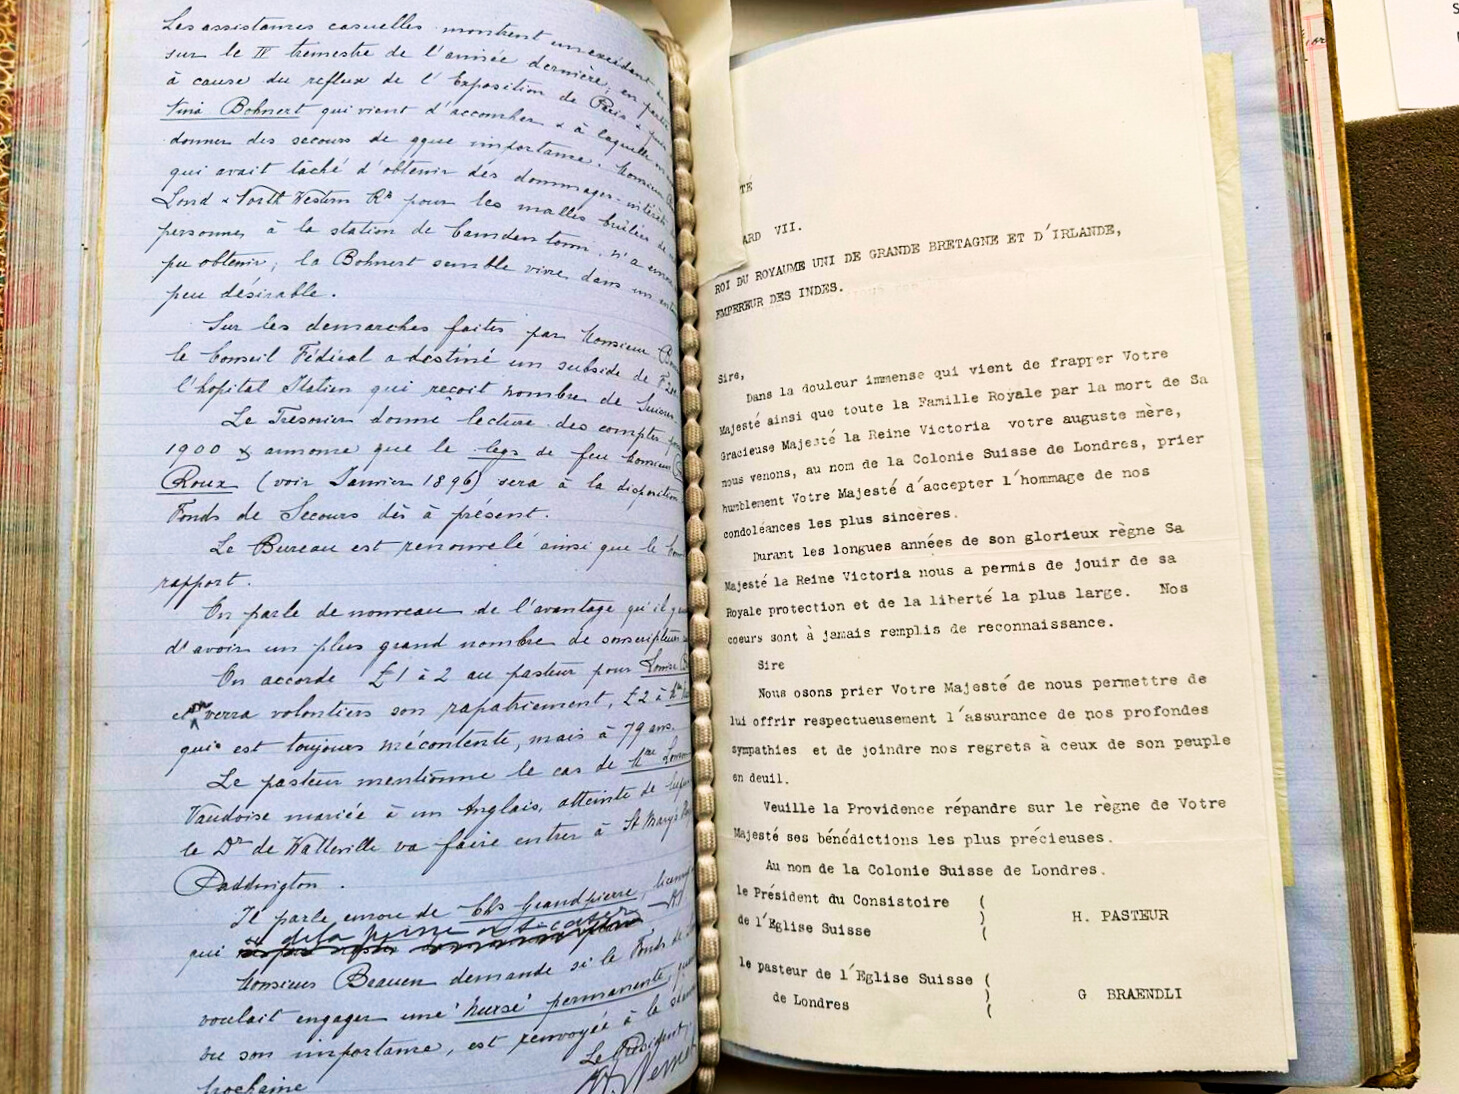 Les assistances casuelles montrent un excédant
sur le IVe trimestre de l'année dernière, en partie
à cause du reflux de l'Exposition de Paris &
tina Bohnert qui vient d'accoucher & à laquelle
donner des secours de qque importance. Monsieur
qui avait tâché d'obtenir des dommages-intérêts
Lond & North Western Ry pour les malles brûlées de
personnes à la station de Camden town, n'a encore
pu obtenir, la Bohnert semble vivre dans un
peu désirable.
Sur les démarches faites par Monsieur
le Conseil Fédéral a destiné un subside de
l'hopital Italien qui reçoit nombre de Suisses
Le Trésorier donne lecture des comptes
1900 & annonce que le legs de feu Monsieur
Roux (voir Janvier 1896) sera à la disposition
Fonds de Secours dès à présent.
Le Bureau est renouvelé ainsi que le
rapport.
On parle de nouveau de l'avantage qu'il y
d'avoir un plus grand nombre de souscripteurs
On accorde £1 à 2 au pasteur pour Louise
et on verra volontiers son rapatriement, £2 à
qui est toujours mécontente, mais à 79 ans.
Le pasteur mentionne le cas de Mme
Vaudoise mariée à un Anglais, atteinte de
le Dr de Watteville va faire entrer à St Mary's
Paddington.
Il parle encore de Chs Grandpierre,
qui
Monsieur Beauen demande si le Fonds de
voulait engager une 'nurse' permanente,
vu son importance, est renvoyée à la séance
prochaine
Le Président,
TÉ
ARD VII.
ROI DU ROYAUME UNI DE GRANDE BRETAGNE ET D'IRLANDE,
EMPEREUR DES INDES.
Sire,
Dans la douleur immense qui vient de frapper Votre
Majesté ainsi que toute la Famille Royale par la mort de Sa
Gracieuse Majesté la Reine Victoria votre auguste mère,
nous venons, au nom de la Colonie Suisse de Londres, prier
humblement Votre Majesté d'accepter l'hommage de nos
condoléances les plus sincères.
Durant les longues années de son glorieux règne Sa
Majesté la Reine Victoria nous a permis de jouir de sa
Royale protection et de la liberté la plus large. Nos
coeurs sont à jamais remplis de reconnaissance.
Sire
Nous osons prier Votre Majesté de nous permettre de
lui offrir respectueusement l'assurance de nos profondes
sympathies et de joindre nos regrets à ceux de son peuple
en deuil.
Veuille la Providence répandre sur le règne de Votre
Majesté ses bénédictions les plus précieuses.
Au nom de la Colonie Suisse de Londres.
le Président du Consistoire (
de l'Eglise Suisse ) ( H. PASTEUR
le pasteur de l'Eglise Suisse (
de Londres ) ( G BRAENDLI